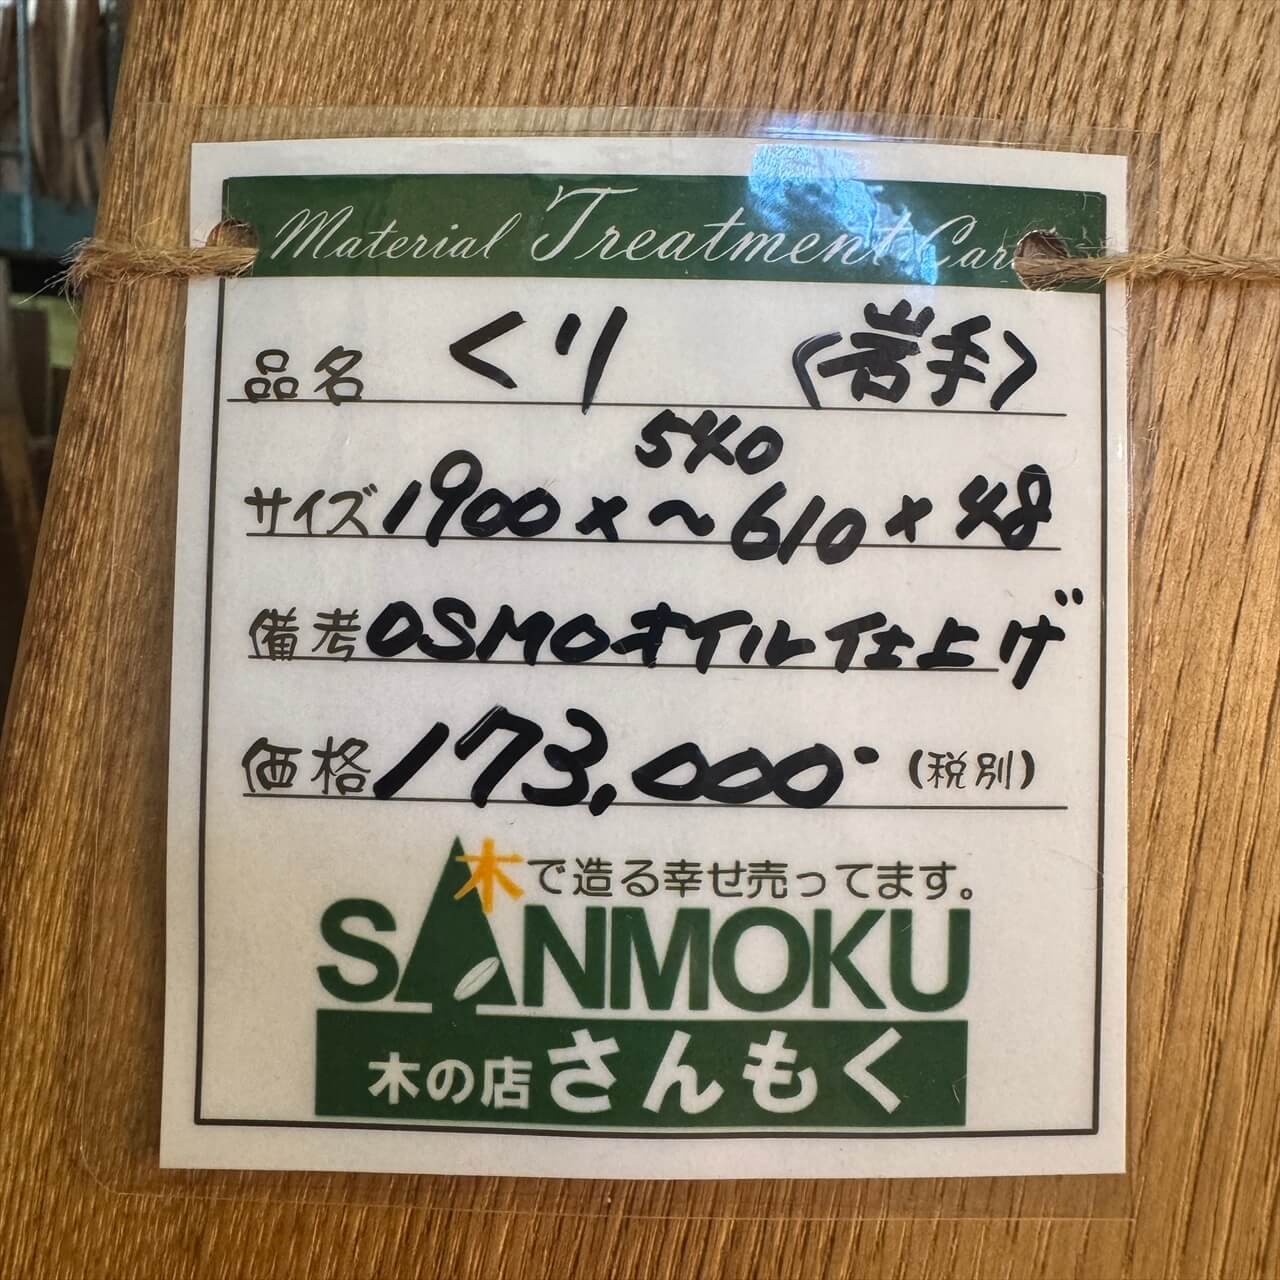 Material Treatment Card
品名 くり (岩手)
540
サイズ 1900×～610×48
備考 OSMOオイル仕上げ
価格 173,000- (税別)
木で造る幸せ売ってます。
SANMOKU
木の店 さんもく